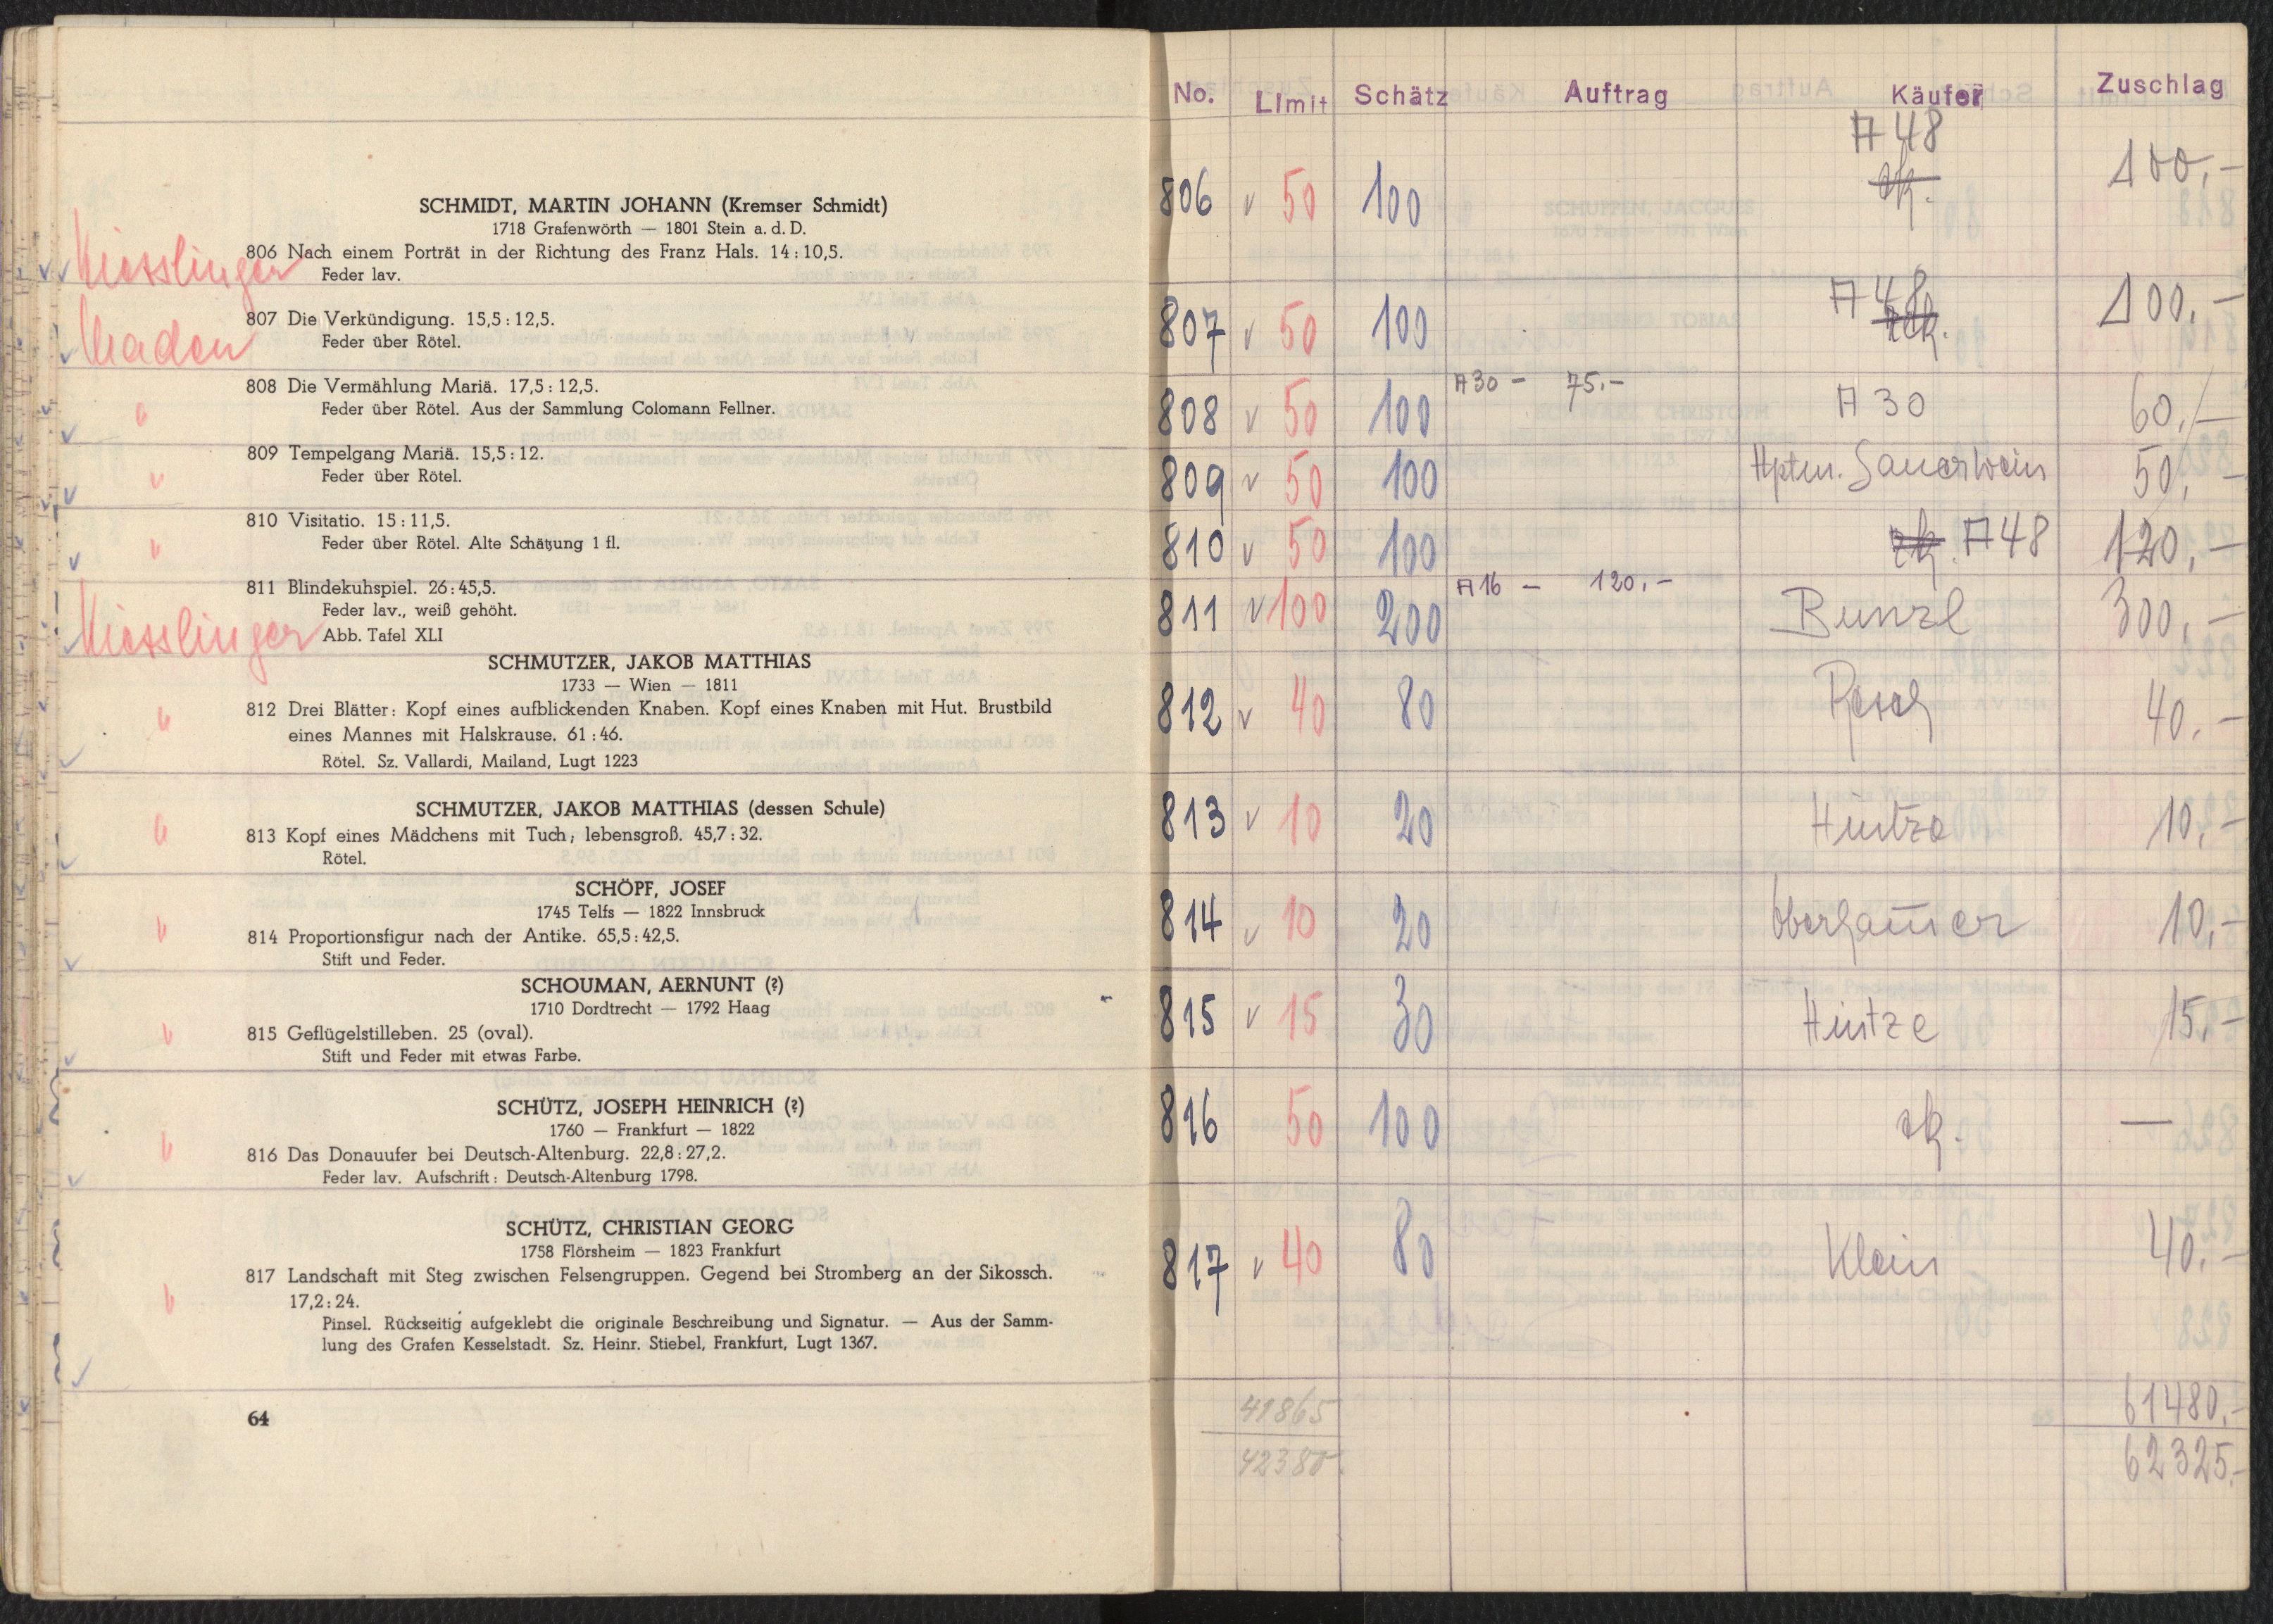 SCHMIDT, MARTIN JOHANN (Kremser Schmidt)
1718 Grafenwörth — 1801 Stein a. d. D.
806 Nach einem Porträt in der Richtung des Franz Hals. 14 : 10,5.
Feder lav.
Kiesslinger
807 Die Verkündigung. 15,5 : 12,5.
Feder über Rötel.
808 Die Vermählung Mariä. 17,5 : 12,5.
Feder über Rötel. Aus der Sammlung Colomann Fellner.
809 Tempelgang Mariä. 15,5 : 12.
Feder über Rötel.
810 Visitatio. 15 : 11,5.
Feder über Rötel. Alte Schätzung 1 fl.
811 Blindekuhspiel. 26 : 45,5.
Feder lav., weiß gehöht.
Kiesslinger
Abb. Tafel XLI
SCHMUTZER, JAKOB MATTHIAS
1733 — Wien — 1811
812 Drei Blätter: Kopf eines aufblickenden Knaben. Kopf eines Knaben mit Hut. Brustbild
eines Mannes mit Halskrause. 61 : 46.
Rötel. Sz. Vallardi, Mailand, Lugt 1223
SCHMUTZER, JAKOB MATTHIAS (dessen Schule)
813 Kopf eines Mädchens mit Tuch; lebensgroß. 45,7 : 32.
Rötel.
SCHÖPF, JOSEF
1745 Telfs — 1822 Innsbruck
814 Proportionsfigur nach der Antike. 65,5 : 42,5.
Stift und Feder.
SCHOUMAN, AERNUNT (?)
1710 Dordtrecht — 1792 Haag
815 Geflügelstilleben. 25 (oval).
Stift und Feder mit etwas Farbe.
SCHÜTZ, JOSEPH HEINRICH (?)
1760 — Frankfurt — 1822
816 Das Donauufer bei Deutsch-Altenburg. 22,8 : 27,2.
Feder lav. Aufschrift: Deutsch-Altenburg 1798.
SCHÜTZ, CHRISTIAN GEORG
1758 Flörsheim — 1823 Frankfurt
817 Landschaft mit Steg zwischen Felsengruppen. Gegend bei Stromberg an der Sikossch.
17,2 : 24.
Pinsel. Rückseitig aufgeklebt die originale Beschreibung und Signatur. — Aus der Samm-
lung des Grafen Kesselstadt. Sz. Heinr. Stiebel, Frankfurt, Lugt 1367.
64
No. Limit Schätz Auftrag Käufer Zuschlag
806 v 50 100 A 48 100,-
807 v 50 100 A 48 100,-
808 v 50 100 A 30 - 75.- A 30 60,-
809 v 50 100 Hptm. Sauerwein 50,-
810 v 50 100 A 48 120,-
811 v 100 200 A 16 - 120,- Bunzl 300,-
812 v 40 80 Resch 40,-
813 v 10 20 Hintze 10,-
814 v 10 20 Oberham̄er 10,-
815 v 15 30 Hintze 15,-
816 50 100 zk. —
817 v 40 80 Klein 40,-
41865 61480,-
42380. 62325,-